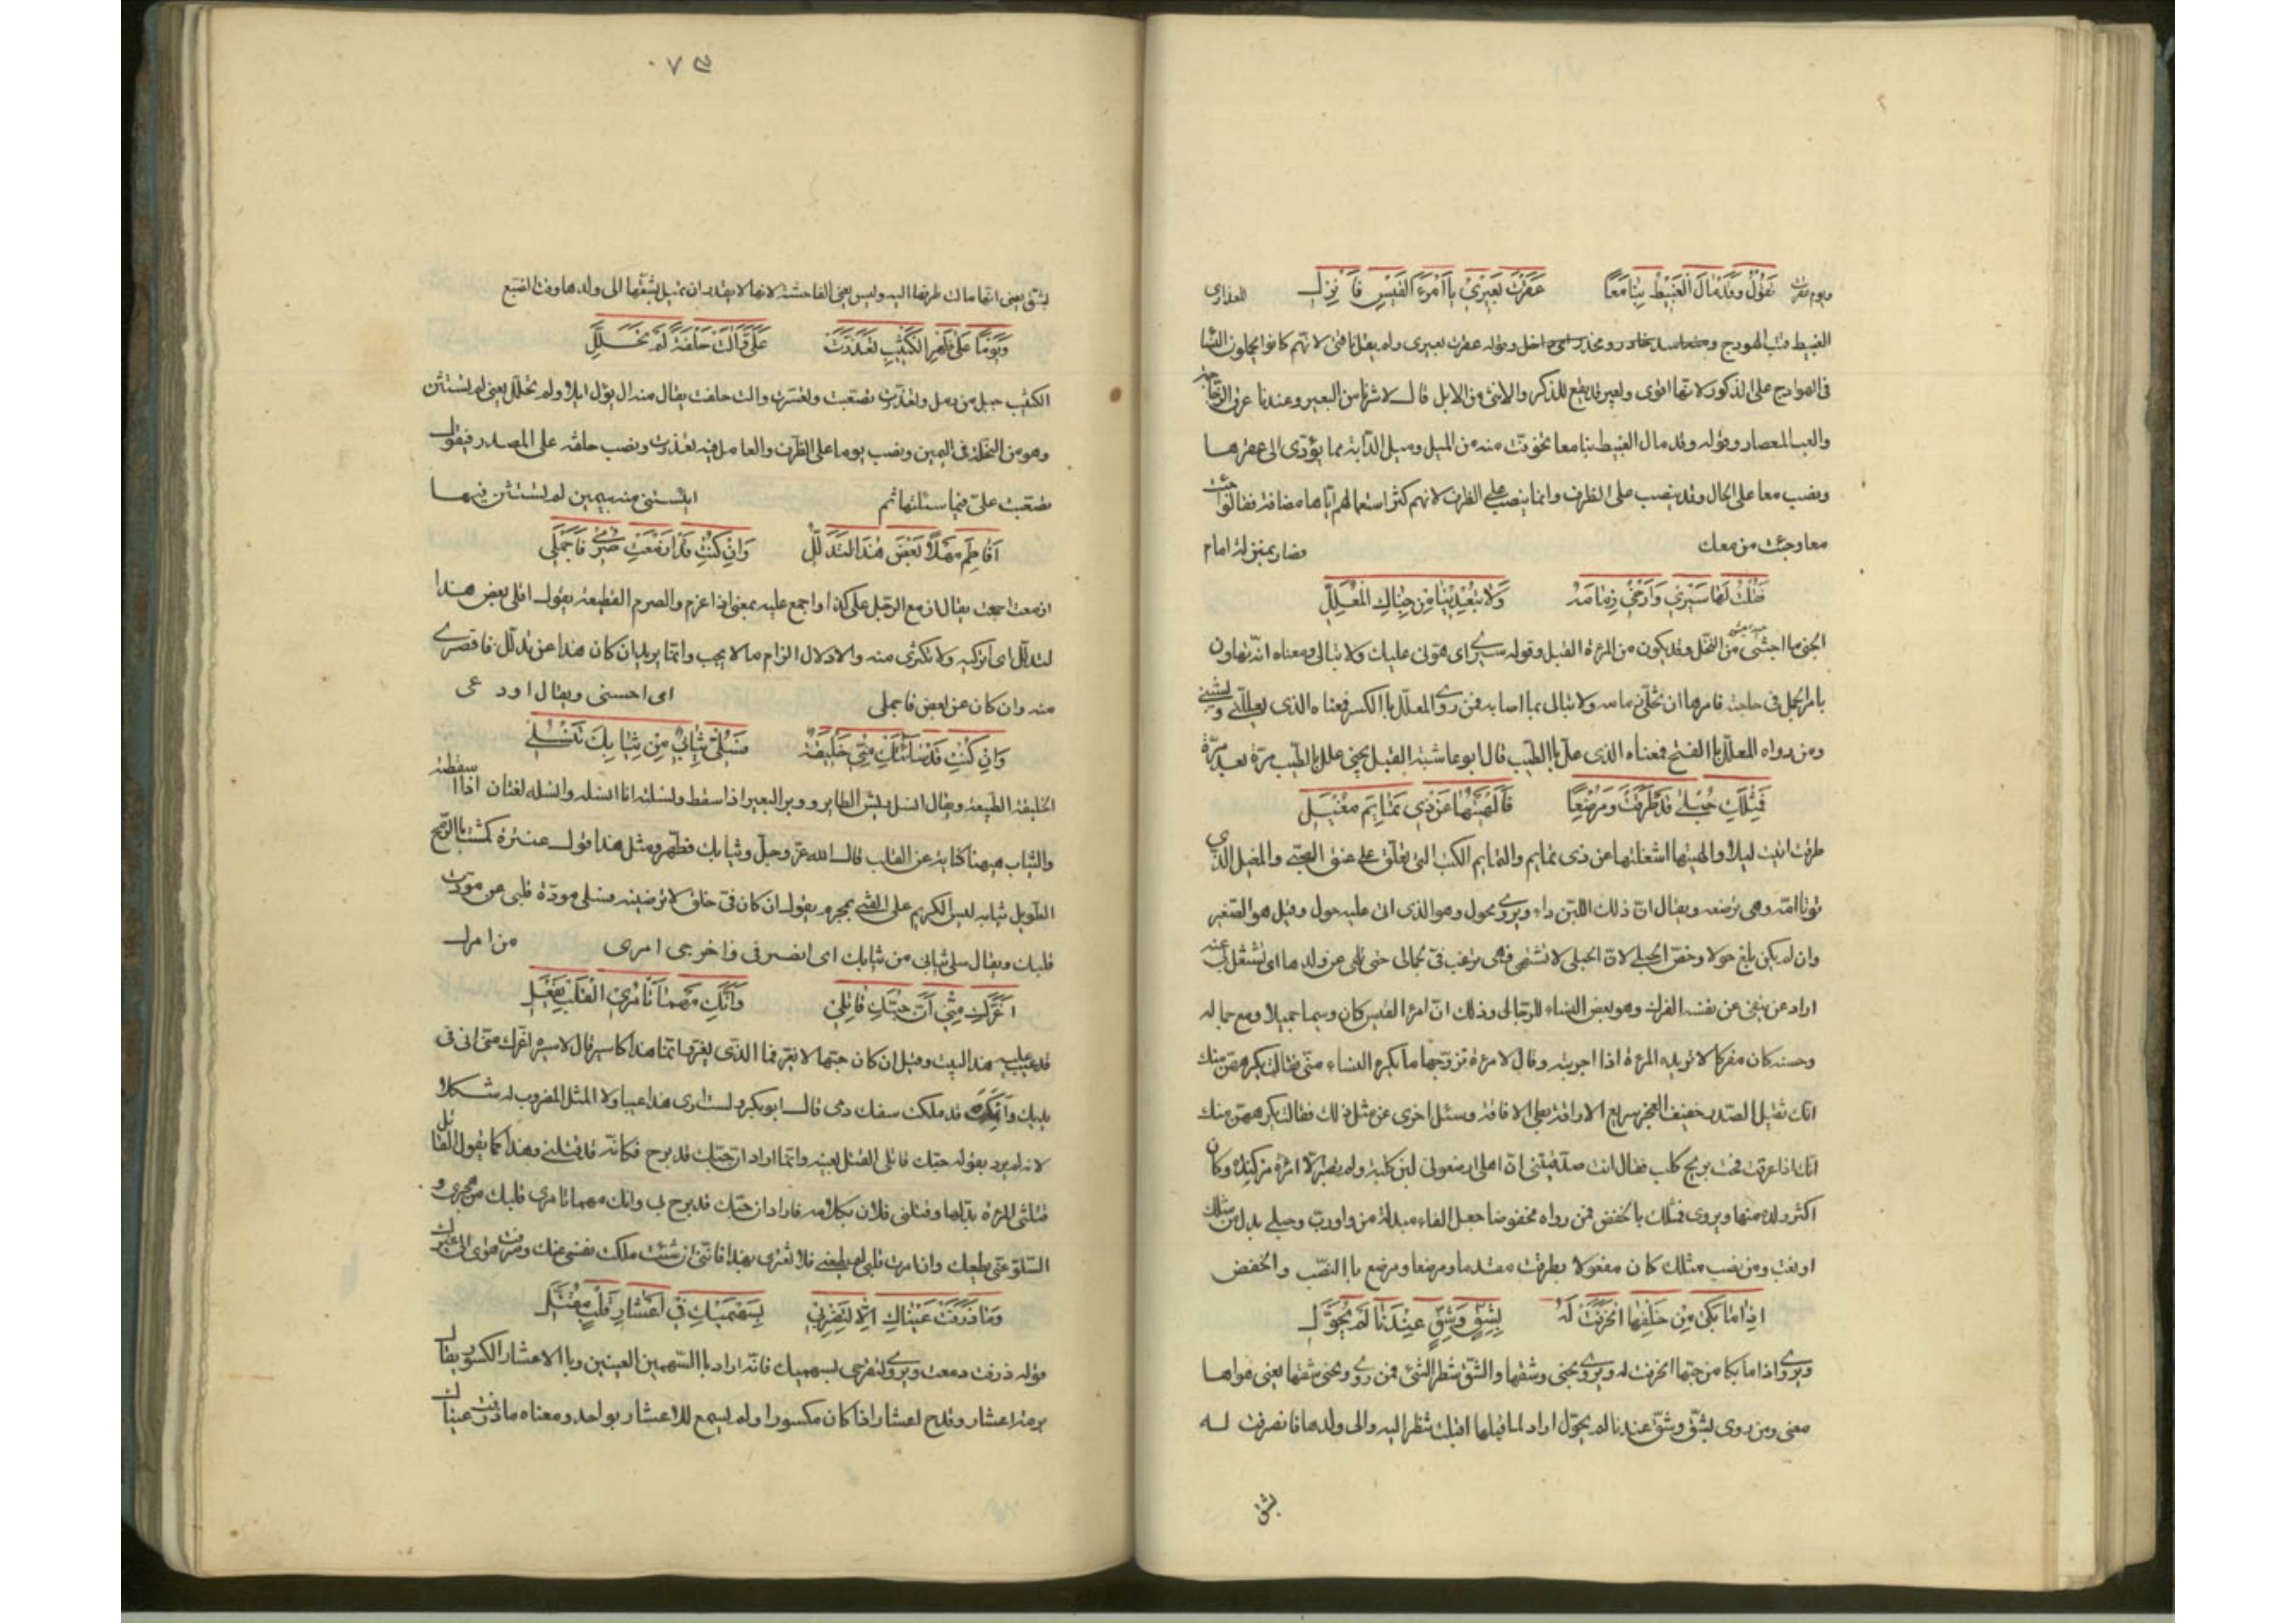 ويوم عقرت تقول وقد مال الغبيط بنا معا عقرت بعيري يا امرء القيس فانزل للعذارى
الغبيط قتب الهودج وقوله عقرت بعيرى ولم يقل ناقتى لانهم كانوا يحملون النسا
فى الهوادج على الذكور لانها اقوى والبعير قد يقع للذكر والانثى من الابل قال
وقوله وقد مال الغبيط بنا معا تخوفت منه من الميل وميل الدابة مما يؤدى الى عقرها
ونصب معا على الحال وقد ينصب على الظرف وانما ينصب على الظرف لانهم كثر استعمالهم اياها مضافة فقالوا جئت
معا وجئت من معك فصار بمنزلة امام
فقلت لها سيري وارخي زمامه ولا تبعديني من جناك المعلل
الجنى ما اجتنى من النخل وقد يكون من المرءة القبل وقوله سيرى اى هونى عليك ولا تبالى ومعناه انه تهاون
بامر الجمل فى حاجته فامرها ان تخلى زمامه ولا تبالى بما اصابه فمن روى المعلل باالكسر فعناه الذى يعللنى
ومن رواه المعلل باالفتح فمعناه الذى علل باالطيب قال ابو عاشية القبل يجنى علل باالطيب مرة بعد مرة
فمثلك حبلى قد طرقت ومرضعا فالهيتها عن ذي تمايم مغيل
طرقت اتيت ليلا والهيتها اشغلتها عن ذى تمايم والتمايم الكتب التى تعلق على عنق الصبى والمغيل الذى
تؤتا امه وهى ترضعه ويقال ان ذلك اللبن داء ويروى محول وهو الذى اتى عليه حول وقيل هو الصغير
وان لم يكن بلغ حولا وخص الحبلى لان الحبلى لا تشتهى فهى ترغب فى جمالى حتى تلهى عن ولدها اى تشتغل بى عنه
اراد عن ينفى عن نفسه الفرك وهو بغض النساء للرجال وذلك ان امرا القيس كان وسيما جميلا ومع جماله
وحسنه كان مفركا لا تريده المرءة اذا جربته وقال لامرءة تزوجها ما يكره النساء منى فقالت يكرهن منك
انك ثقيل الصدر خفيف العجز سريع الاراقة بطى الافاقة وسئل اخرى عن مثل ذلك فقالت يكرهن منك
انك اذا عرقت فحت بريح كلب فقال انت صدقتنى ان اهلى ارضعونى لبن كلبة ولم تصبر الا امرءة من كندة وكان
اكثر ولده منها ويروى فمثلك باالخفض فمن رواه مخفوضا جعل الفاء مبدلة من واو رب وحبلى بدل من مثلك
او نعت ومن نصب مثلك كان مفعولا بطرقت مقدما ومرضعا ومرضع باالنصب والخفض
اذا ما بكى من خلفها انحرفت له بشق وشق عندنا لم يحول
ويروى اذا ما بكا من حبها انحرفت له ويروى بحتى وشقها والشق شطر الشئ فمن روى وتحتى شقها يعنى هواها
معنى ومن روى بشق وشق عندنا لم يحول اراد لما قبلها اقبلت تنظر اليه والى ولدها فانصرفت له
بشق
بشق يعنى انها مالت طرفها اليه وليس يعنى الفاحشة لانها لا يقدر ان تميل بشقها الى ولدها وقت
ويوما على ظهر الكثيب تعذرت علي وآلت حلفة لم تحلل
الكثيب جبل من رمل وتعذرت تصعبت وتعسرت وآلت حلفت يقال منه آل يؤل ايلاء ولم تحلل يعنى لم تستثن
وهو من التحلة فى اليمين ونصب يوما على الظرف والعامل فيه تعذرت ونصب حلفة على المصدر فيقول
تصعبت على فيما سئلتها ثم بيمين لم تستثن فيها
افاطم مهلا بعض هذا التدلل وان كنت قد ازمعت صرمي فاجملي
ازمعت اجمعت يقال ازمع الرجل على كذا واجمع عليه بمعنى اذا عزم والصرم القطيعة يقول اقلى بعض هذا
لتدلل اى اتركيه ولا تكثرى منه والادلال الزام ما لا يجب وانما يريد ان كان هذا عن تدلل فاقصرى
منه وان كان عن بغض فاجملى اى احسنى ويقال اودعى
وان كنت قد ساءتك مني خليقة فسلي ثيابي من ثيابك تنسلي
الخليقة الطبيعة ويقال انسل ريش الطاير ووبر البعير اذا سقط ونسلته انا انسله وانسله لغتان اذا اسقطته
والثياب هيهنا كناية عن القلب قال الله عز وجل وثيابك فطهر ومثل هذا قول عنترة كمشت باالرمح
الطويل ثيابه ليس الكريم على القنى بمحرم يقول ان كان فى خلق لا ترضينه فسلى مودة قلبى عن مودت
قلبك ويقال سلى ثيابى من ثيابك اى انصرفى واخرجى امرى من امرك
اغرك مني ان حبك قاتلي وانك مهما تامري القلب يفعل
قد عيب عليه هذا البيت وقيل ان كان حبها لا يغر فما الذى يغر انما هذا كاسير قال لاسره اغرك منى انى فى
يديك وانك قد ملكت سفك دمى قال ابو بكر ولست ارى هذا عيبا ولا المثل المضروب له شكلا
لانه لم يرد بقوله حبك قاتلى القتل بعينه وانما اراد ان حبك قد برح فكانه قد قتلنى وهذا كما يقول القائل
قتلتنى المرءة بدلها وقتلنى فلان بكلامه فاراد ان حبك قد برح بى وانك مهما تامرى قلبك من هجرى و
السلو عنى يطعك وان امرت قلبى لم يطعنى فلا تغترى بهذا فاننى ان شئت ملكت نفسى عنك وصرفت هواى
وما ذرفت عيناك الا لتضربي بسهميك في اعشار قلب مقتل
قوله ذرفت دمعت ويروى لتقدحى بسهميك فانه اراد باالسهمين العينين وباالاعشار الكسور يقال
برمة اعشار وقدح اعشار اذا كان مكسورا ولم يسمع للاعشار بواحد ومعناه ما ذرفت عيناك